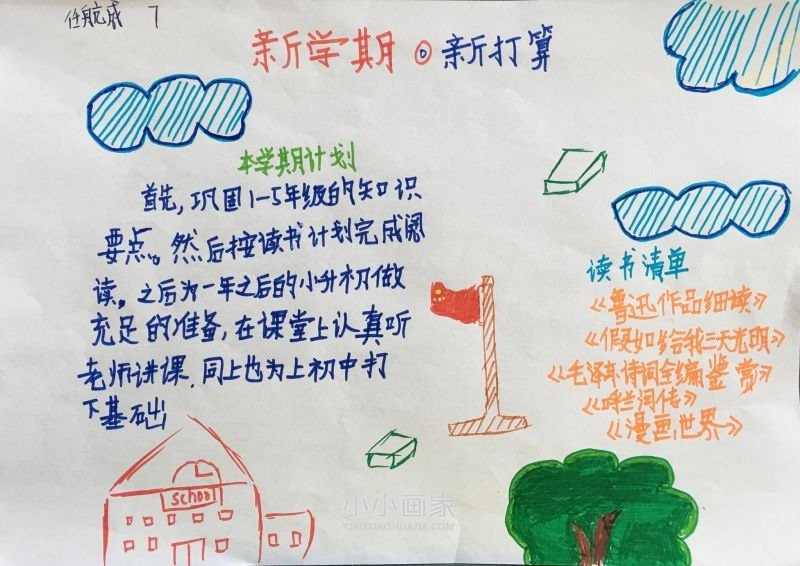 任航成 7
新学期·新打算
本学期计划
首先,巩固1-5年级的知识
要点。然后按读书计划完成阅
读。之后为一年之后的小升初做
充足的准备,在课堂上认真听
老师讲课.同上也为上初中打
下基础
读书清单
《鲁迅作品细读》
《假如给我三天光明》
《毛泽东诗词全编鉴赏》
《呼兰河传》
《漫画世界》
school
小小画家
XIAOXIAOHUAJIA.COM